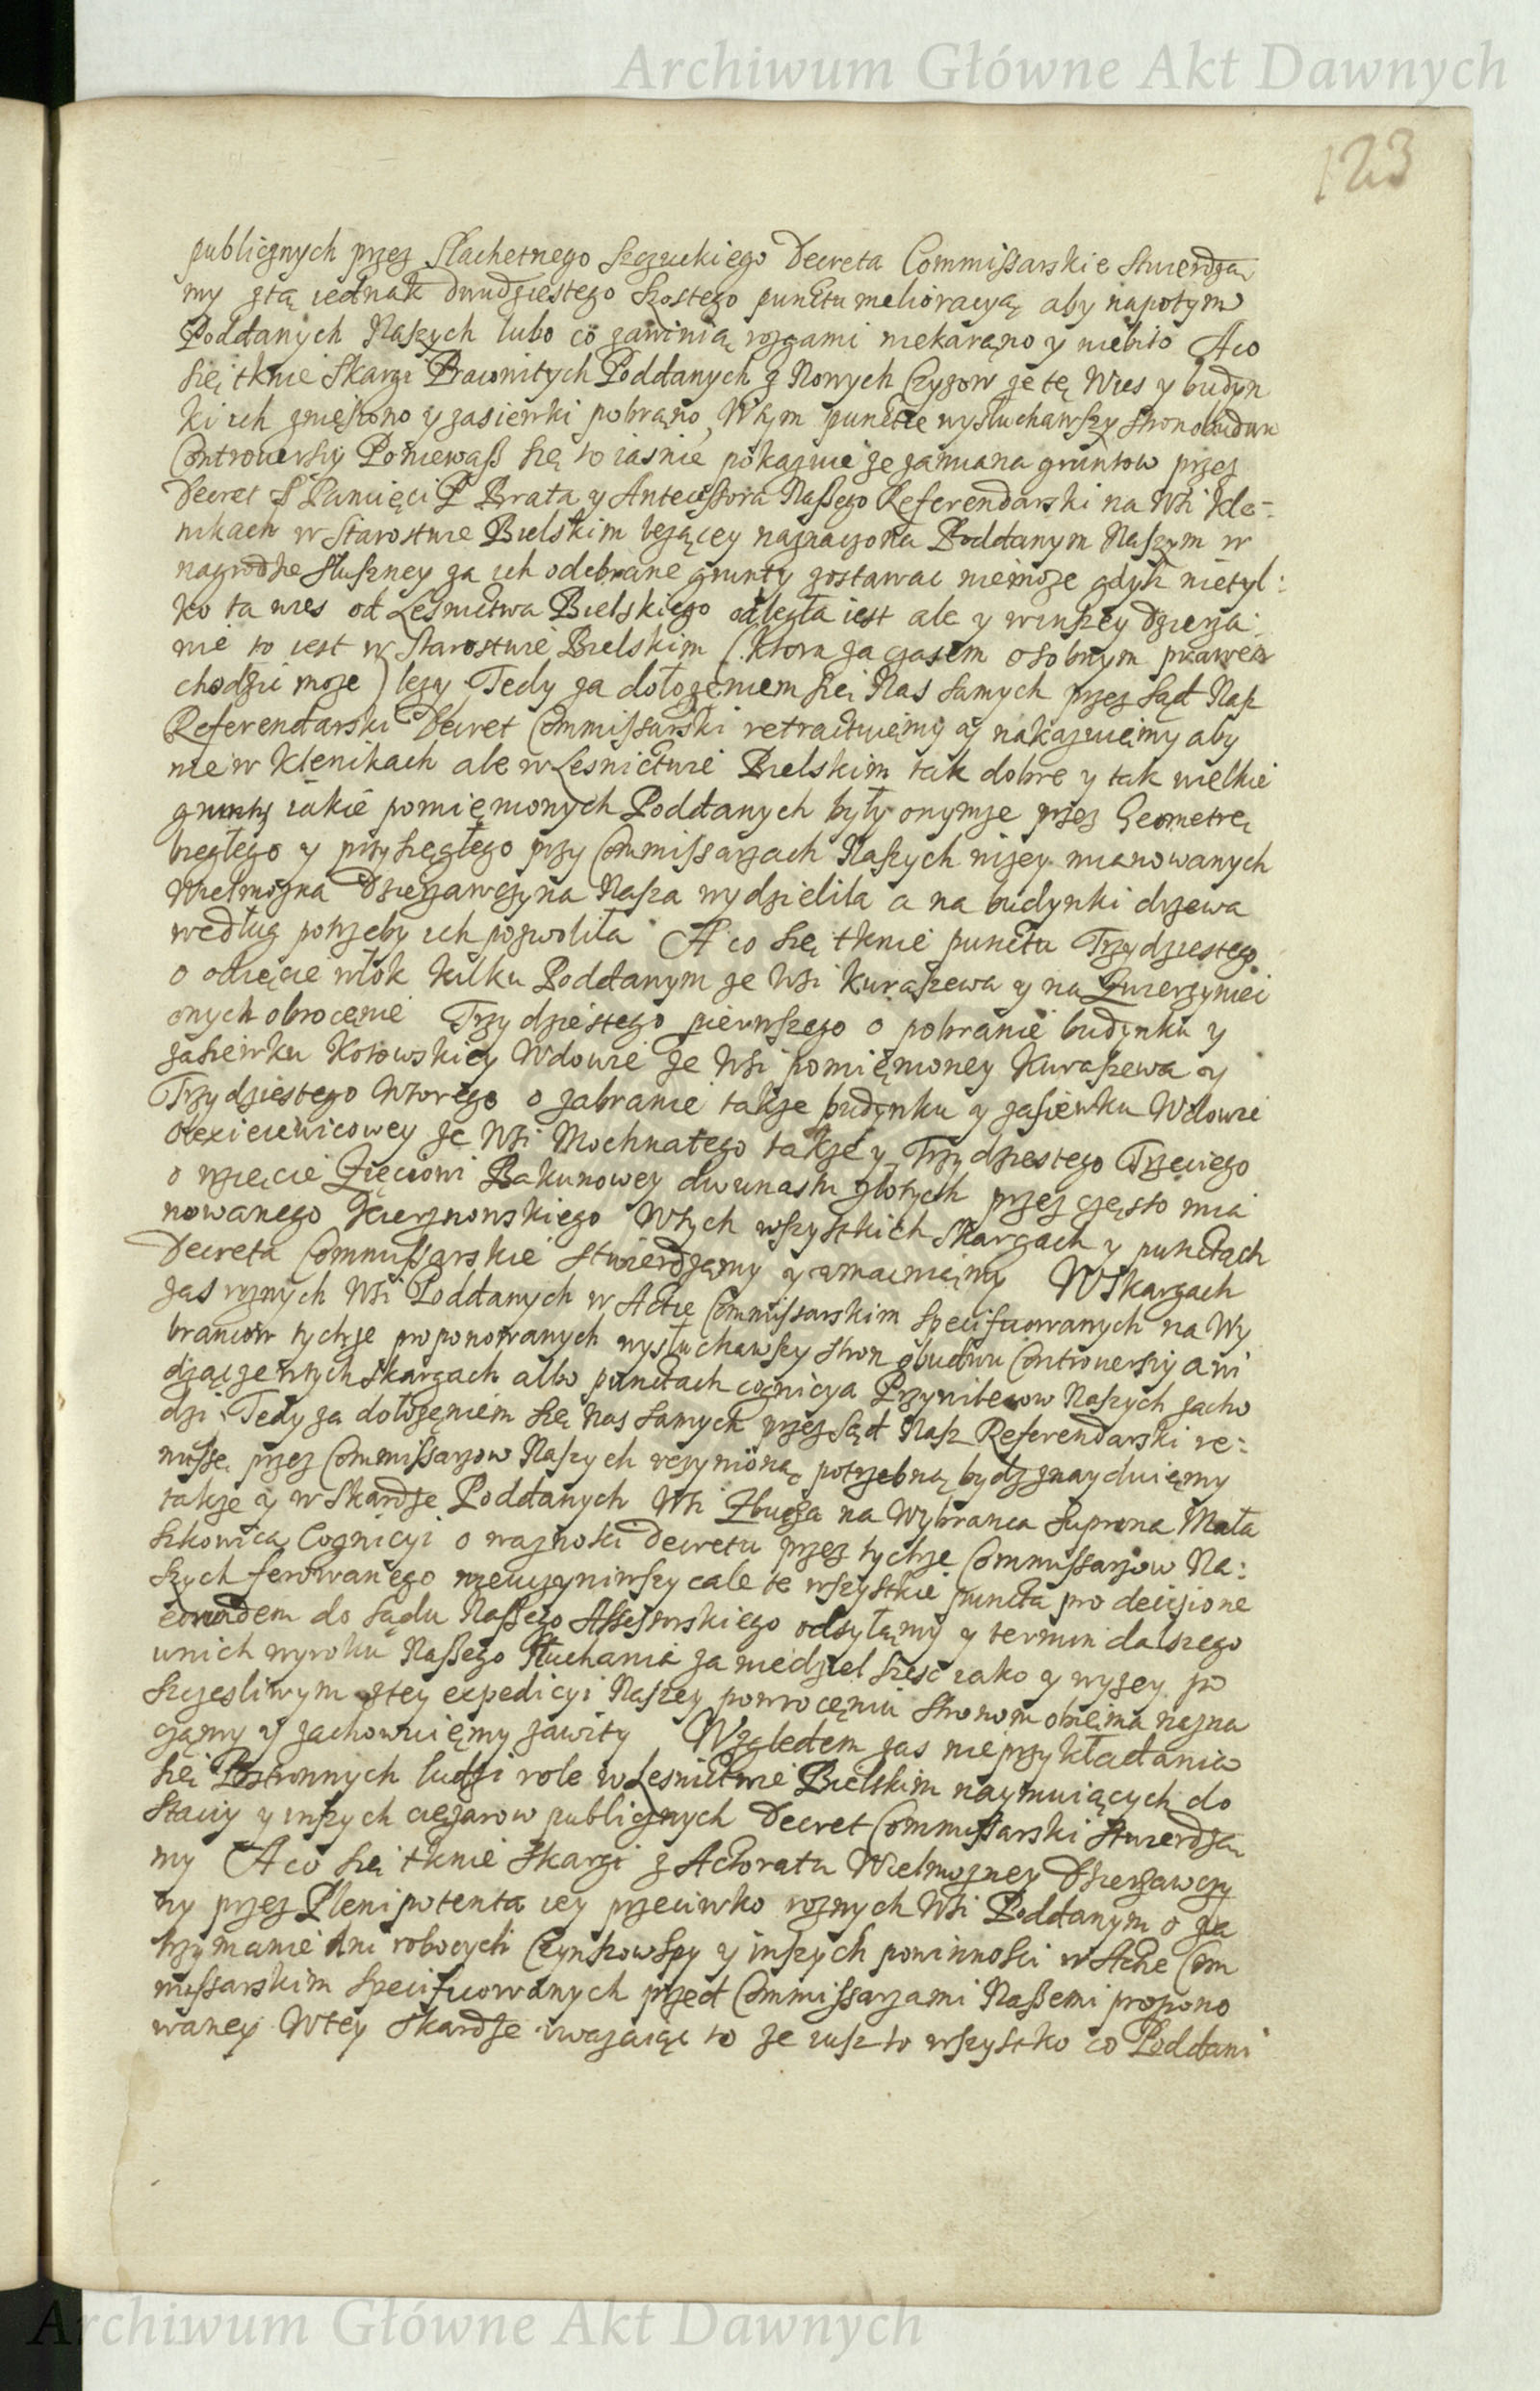 Archiwum Główne Akt Dawnych
123
publicznych przez Slachetnego Szczuckiego Decreta Commissarskie stwierdza
my ztą iednak dwudziestego szostego punctu melioracyą aby napotym
Poddanych Naszych lubo co zawinią rozgami niekarąno y niebito A co
się tknie Skargi Pracowitych Poddanych z Nowych Czyzow ze tę Wies y budyn
ki ich zniesiono y zasiewki pobrąno, W tym punctie wysłuchawszy stron obudwu
Controuersiy Poniewasz się to iasnie pokazuie ze zamiana gruntow przez
Decret S Pamięci P Brata y Antecessora Naszego Referendarski na Wsi Kle-
nikach w Starostwie Bielskim lezącey naznaczona Poddanym Naszym w
nagrodzie słuszney za ich odebrane grunty zostawac niemoze gdysz nietyl:
ko ta wies od Lesnictwa Bielskiego odległa iest ale y w inszey dzierza:
wie to iest w Starostwie Bielskim (ktora za czasem osobnym prawem
chodzic moze) lezy Tedy za dołozeniem się Nas samych przez Sąd Nasz
Referendarski Decret Commissarski retractuiemy y nakazuiemy aby
nie w Klenikach ale w Lesnictwie Bielskim tak dobre y tak wielkie
grunty iakie pomienionych Poddanych były onymze przez Geometrę
biegłego y przysięgłego przy Commissarzach Naszych nizey mianowanych
Wielmozna Dzierzawczyna Nasza wydzieliła a na budynki drzewa
według potrzeby ich pozwoliła A co się tknie punctu Trzydziestego
o odięcie włok kilku Poddanym ze Wsi Kuraszewa y na Zwierzyniec
onych obrocenie Trzydziestego pierwszego o pobranie budynku y
zasiewku Kotowskiey Wdowie ze Wsi pomienioney Kuraszewa y
Trzydziestego Wtorego o zabranie takze budynku y zasiewku Wdowie
Olexiciewicowey ze Wsi Mochnatego takze y Trzydziestego Trzeciego
o wzięcie Zięciowi Bakunowey dwunastu złotych przez często mia
nowanego Wtych wszystkich Skargach y punctach
Decreta Commissarskie stwierdzamy y zmacniamy W Skargach
zas roznych Wsi Poddanych w Actie Commissarskim specifikowanych na Wy
brancow tychze proponowanych wysłuchawszy stron obudwu Controuersiy a wi
dząc ze wtych skargach albo punctach cognicya Przywileiow Naszych zacho
dzi Tedy za dołozeniem się Nas samych przez Sąd Nasz Referendarski re:
missę przez Commissarzow Naszych uczynioną potrzebną bydz znayduiemy
takze y w skardze Poddanych Wsi Zbucza na Wybranca Suprona Mała
szkowica Cognicyi o waznosci Decretu przez tychze Commissarzow Na:
szych ferowanego nieuczyniwszy cale te wszystkie puncta pro decisione
eorundem do Sądu Naszego Assessorskiego odsyłamy y termin dalszego
wnich wyroku Naszego słuchania za niedziel szesc iako y wyzey po
szczesliwym ztey expedicyi Naszey powroceniu stronom obiema nazna
czamy y zachowuiemy zawity Względem zas nieprzykładania
się Postronnych ludzi role w Lesnictwie Bielskim naymuiących do
staciy y inszych cięzarow publicznych Decret Commissarski stwierdza
my A co się tknie skargi z Actoratu Wielmozney Dzierzawczy
ny przez Plenipotenta iey przeciwko roznych Wsi Poddanym o za
trzymanie dni robocych Czynszow y inszych powinnosci w Actie Com
missarskim specifikowanych przed Commissarzami Naszemi propono
waney Wtey skardze uwazaiąc to ze iusz to wszystko co Poddani
Archiwum Główne Akt Dawnych